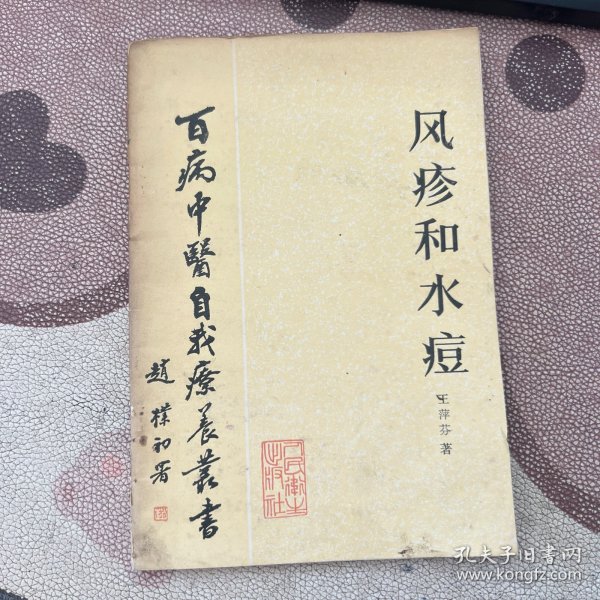 风疹和水痘
王萍芬著
百病中醫自我療養叢書
趙樸初署
人民衛生出版社
孔夫子旧书网
www.kongfz.com